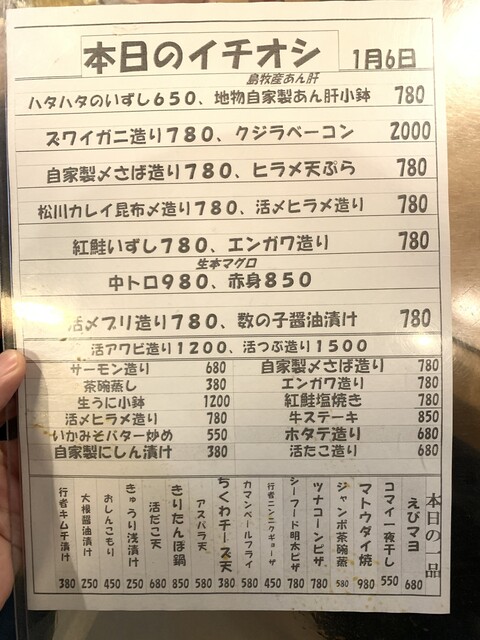 本日のイチオシ 1月6日
島牧産あん肝
ハタハタのいずし650、地物自家製あん肝小鉢 780
ズワイガニ造り780、クジラベーコン 2000
自家製〆さば造り780、ヒラメ天ぷら 780
松川カレイ昆布〆造り780、活〆ヒラメ造り 780
紅鮭いずし780、エンガワ造り 780
生本マグロ
中トロ980、赤身850
活〆ブリ造り780、数の子醤油漬け 780
活アワビ造り1200、活つぶ造り1500
サーモン造り 680 自家製〆さば造り 780
茶碗蒸し 380 エンガワ造り 780
生うに小鉢 1200 紅鮭塩焼き 780
活〆ヒラメ造り 780 牛ステーキ 850
いかみそバター炒め 550 ホタテ造り 680
自家製にしん漬け 380 活たこ造り 680
本日の一品
えびマヨ 680
コマイ一夜干し 550
マトウダイ焼 980
ジャンボ茶碗蒸 580
ツナコーンピザ 780
シーフード明太ピザ 780
行者ニンニクギョーザ 450
カマンベールフライ 580
ちくわチーズ天 380
アスパラ天 580
きりたんぽ鍋 850
活だこ天 680
きゅうり浅漬け 250
おしんこもり 450
大根醤油漬け 250
行者キムチ漬け 380